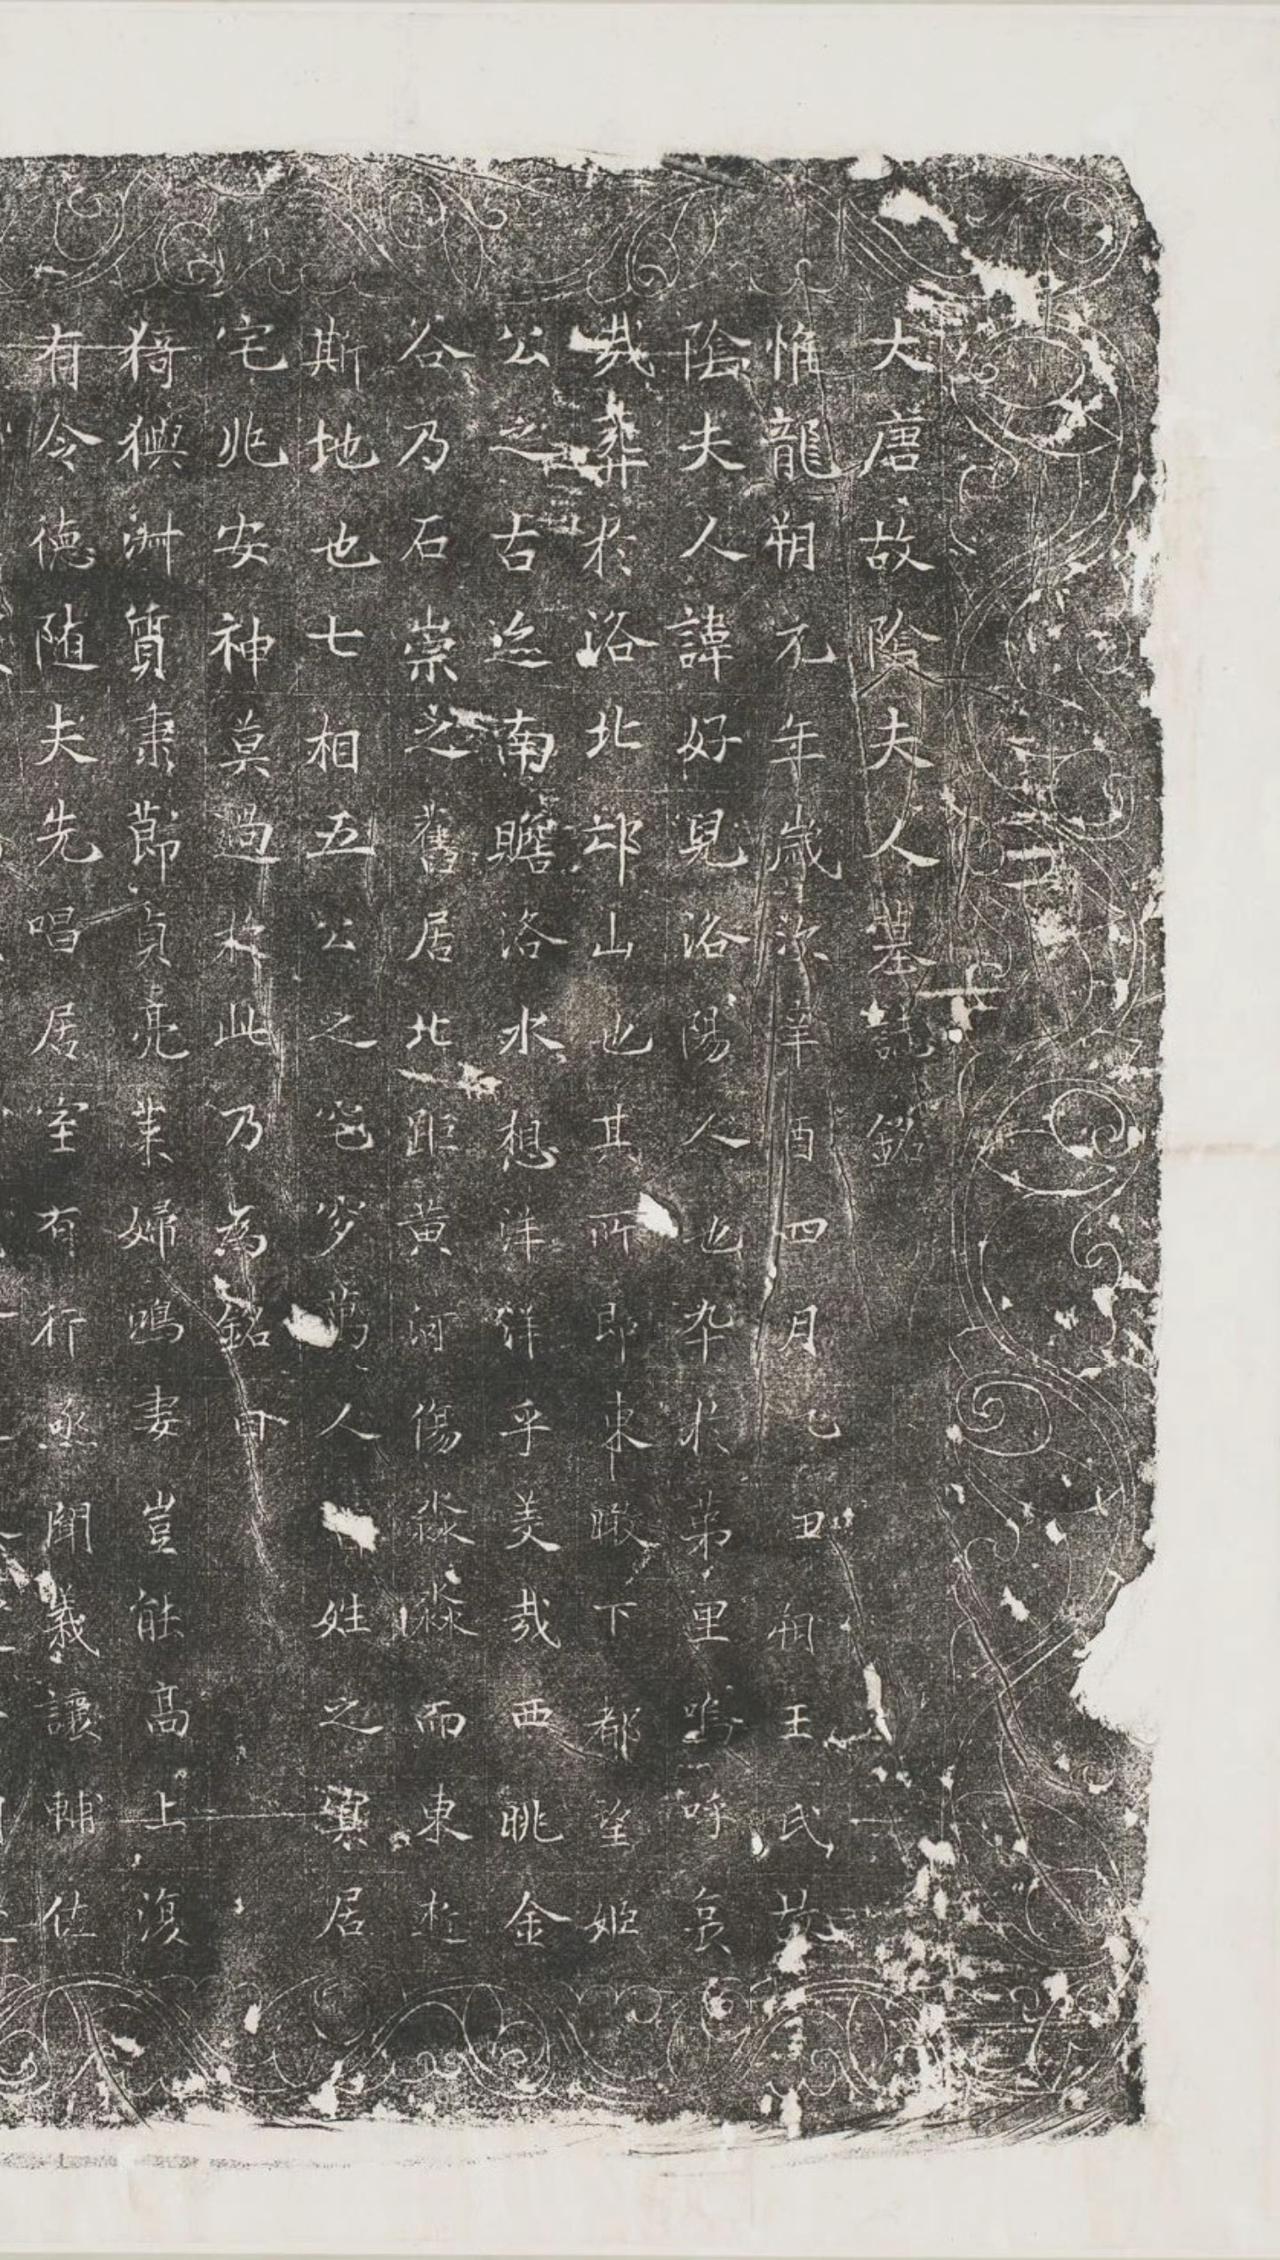 大唐故陰夫人墓誌銘
惟龍朔元年歲次辛酉四月乙丑朔王氏故
陰夫人諱好兒洛陽人也卒於第里嗚呼哀
哉葬於洛北邙山也其所即東瞰下都望姬
公之古迹南瞻洛水想洋洋乎美哉西眺金
谷乃石崇之舊居北距黃河傷淼淼而東逝
斯地也七相五公之宅夕萬人百姓之冥居
宅兆安神莫過於此乃為銘曰
猗歟淋質肅節貞亮業婦鴻妻豈能高上復
有令德随夫先唱居室有行亟聞義讓輔佐